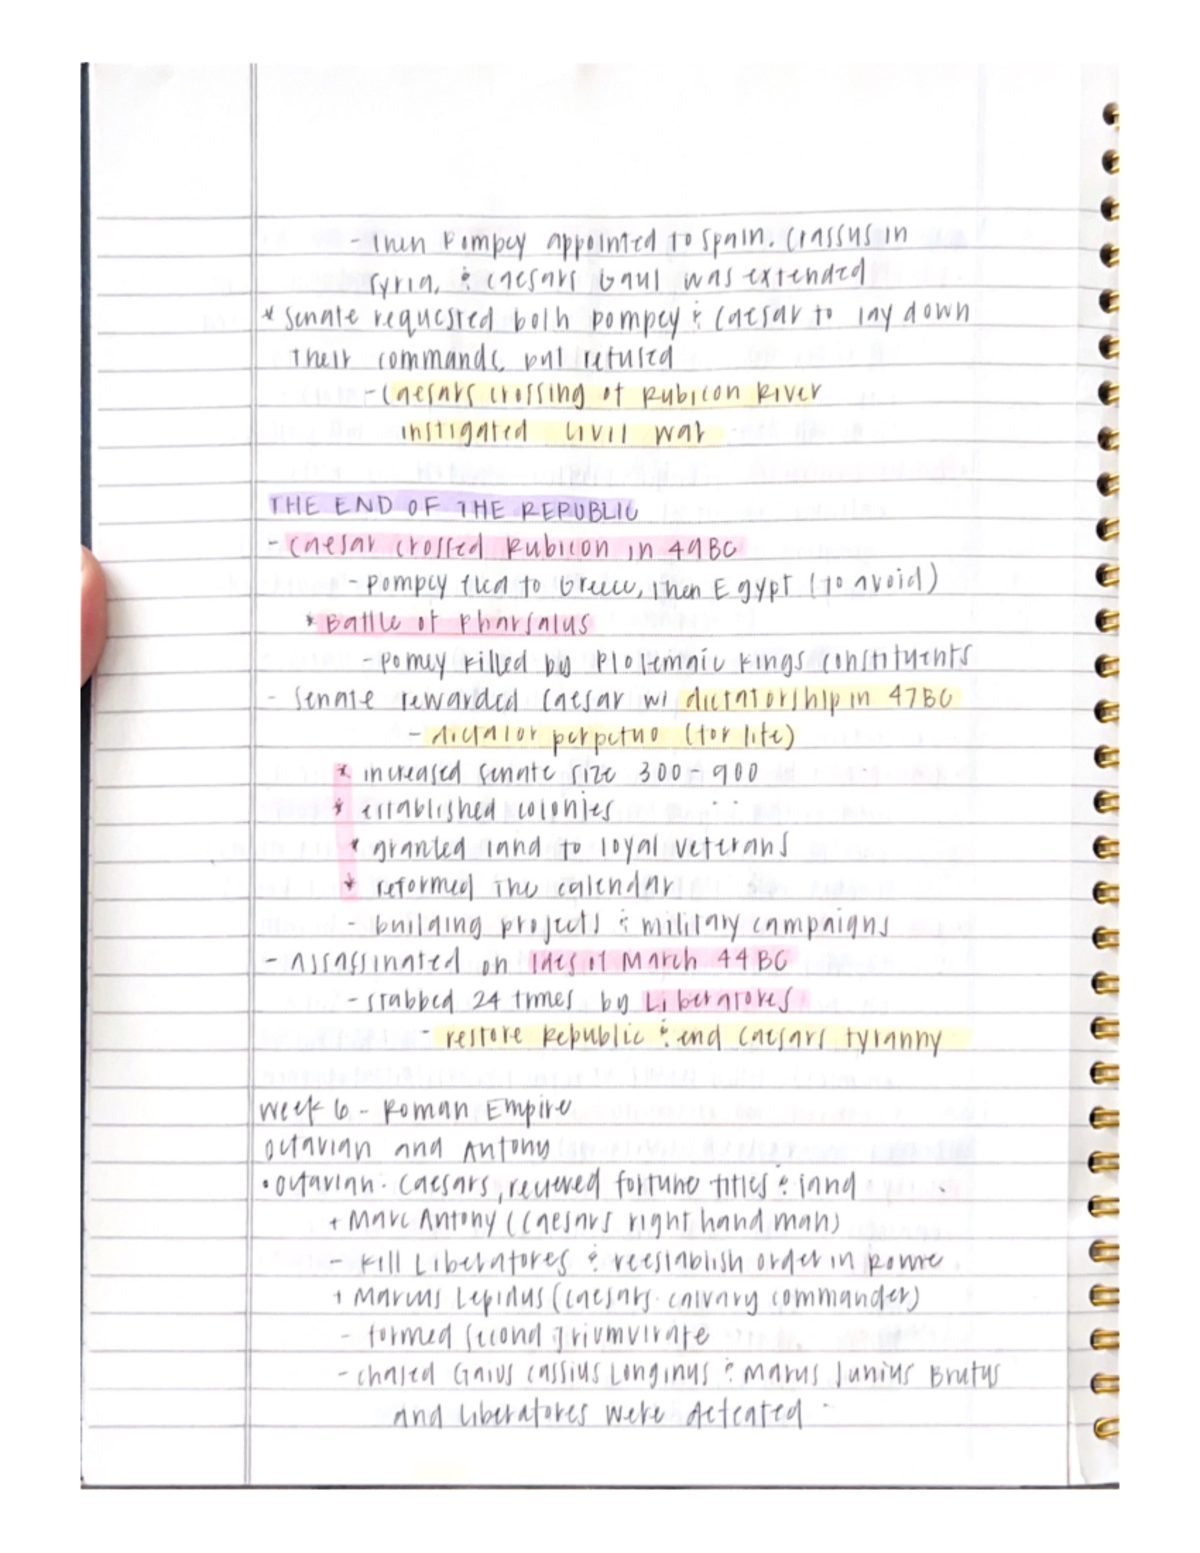 - Then Pompey appointed to Spain, Crassus in
Syria, & Caesars Gaul was extended
* Senate requested both Pompey & Caesar to lay down
their commands, but refused
- Caesars crossing of Rubicon River
instigated civil war
THE END OF THE REPUBLIC
- Caesar crossed Rubicon in 49BC
- Pompey fled to Greece, then Egypt (to avoid)
* Battle of Pharsalus
- Pomey killed by Ptolemaic Kings constituents
- Senate rewarded Caesar w/ dictatorship in 47BC
- dictator perpetuo (for life)
* increased senate size 300-900
* established colonies
* granted land to loyal veterans
* reformed the calendar
- building projects & military campaigns
- Assassinated on Ides of March 44BC
- stabbed 24 times by Liberatores
- restore Republic & end Caesars tyranny
Week 6 - Roman Empire
Octavian and Antony
• Octavian: Caesars, recieved fortune titles & land
+ Marc Antony (Caesars right hand man)
- kill Liberatores & reestablish order in Rome
+ Marcus Lepidus (Caesars calvary commander)
- formed second Triumvirate
- chased Gaius Cassius Longinus & Marus Junius Brutus
and Liberatores were defeated